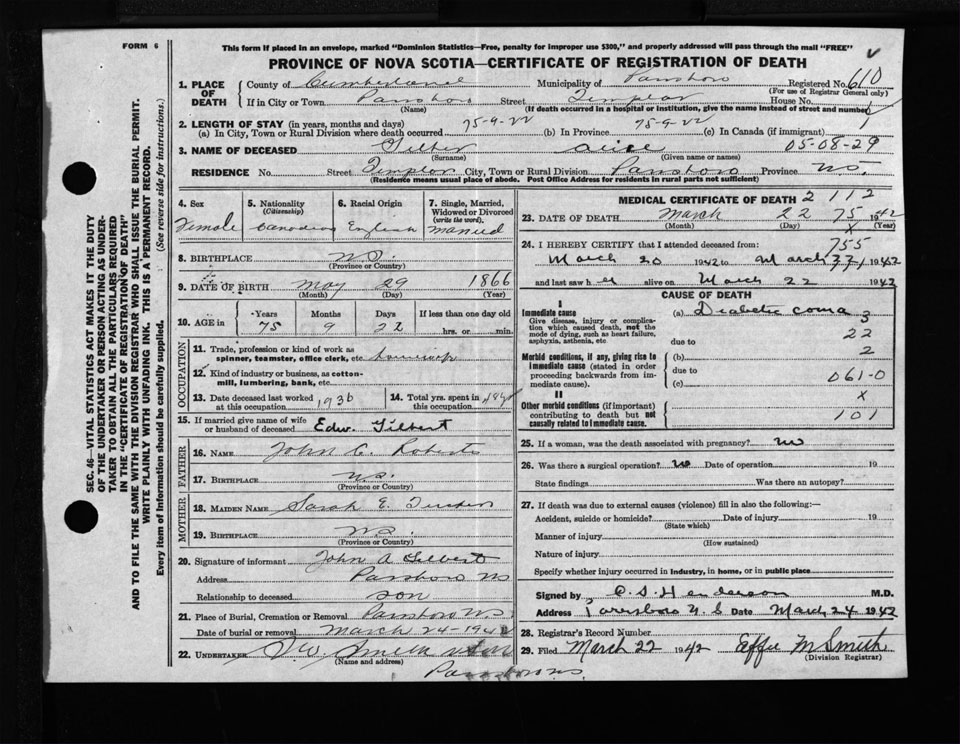 FORM 6
This form if placed in an envelope, marked "Dominion Statistics—Free, penalty for improper use $300," and properly addressed will pass through the mail "FREE"
PROVINCE OF NOVA SCOTIA—CERTIFICATE OF REGISTRATION OF DEATH
1. PLACE OF DEATH County of Cumberland Municipality of Parrsboro Registered No. 610
(For use of Registrar General only)
If in City or Town Parrsboro Street Templar House No. 1
(Name) (If death occurred in a hospital or institution, give the name instead of street and number)
2. LENGTH OF STAY (in years, months and days)
(a) In City, Town or Rural Division where death occurred 75-9-22 (b) In Province 75-9-22 (c) In Canada (if immigrant) 1
3. NAME OF DECEASED Gilbert Alice 05-08-29
(Surname) (Given name or names)
RESIDENCE No. Street Templar City, Town or Rural Division Parrsboro Province NS.
(Residence means usual place of abode. Post Office Address for residents in rural parts not sufficient)
4. Sex Female
5. Nationality (Citizenship) Canadian
6. Racial Origin English
7. Single, Married, Widowed or Divorced (write the word) Married
8. BIRTHPLACE N.S.
(Province or Country)
9. DATE OF BIRTH May 29 1866
(Month) (Day) (Year)
10. AGE in Years 75 Months 9 Days 22 If less than one day old hrs. or min.
OCCUPATION
11. Trade, profession or kind of work as spinner, teamster, office clerk, etc. housewife
12. Kind of industry or business, as cotton-mill, lumbering, bank, etc.
13. Date deceased last worked at this occupation 1936
14. Total yrs. spent in this occupation
15. If married give name of wife or husband of deceased Edw. Gilbert
FATHER
16. NAME John C. Roberts
17. BIRTHPLACE N.S.
(Province or Country)
MOTHER
18. MAIDEN NAME Sarah E.
19. BIRTHPLACE N.S.
(Province or Country)
20. Signature of informant John A Gilbert
Address Parrsboro NS
Relationship to deceased son
21. Place of Burial, Cremation or Removal Parrsboro N.S.
Date of burial or removal March 24-1942
22. UNDERTAKER Smith
(Name and address)
Parrsboro NS.
MEDICAL CERTIFICATE OF DEATH 2 112
23. DATE OF DEATH March 22 75 1942
(Month) (Day) X (Year)
24. I HEREBY CERTIFY that I attended deceased from: 755
March 20 1942 to March 22 1942
and last saw her alive on March 22 1942
CAUSE OF DEATH
I
Immediate cause (a) Diabetic coma 3
Give disease, injury or complication which caused death, not the mode of dying, such as heart failure, asphyxia, asthenia, etc
22
due to
2
Morbid conditions, if any, giving rise to immediate cause (stated in order proceeding backwards from immediate cause).
(b)
due to
(c) 061-0
II X
Other morbid conditions (if important) contributing to death but not causally related to immediate cause. 101
25. If a woman, was the death associated with pregnancy? no
26. Was there a surgical operation? no Date of operation 19
State findings Was there an autopsy?
27. If death was due to external causes (violence) fill in also the following:—
Accident, suicide or homicide? Date of injury 19
(State which)
Manner of injury
(How sustained)
Nature of injury
Specify whether injury occurred in industry, in home, or in public place
Signed by C. S. Henderson M.D.
Address Parrsboro N.S Date March 24 1942
28. Registrar's Record Number
29. Filed March 22 1942 Effie M Smith
(Division Registrar)
SEC. 46—VITAL STATISTICS ACT MAKES IT THE DUTY
OF THE UNDERTAKER OR PERSON ACTING AS UNDER-
TAKER TO OBTAIN ALL THE PARTICULARS REQUIRED
IN THE "CERTIFICATE OF REGISTRATION OF DEATH"
AND TO FILE THE SAME WITH THE DIVISION REGISTRAR WHO SHALL ISSUE THE BURIAL PERMIT.
WRITE PLAINLY WITH UNFADING INK. THIS IS A PERMANENT RECORD.
Every item of Information should be carefully supplied. (See reverse side for instructions.)